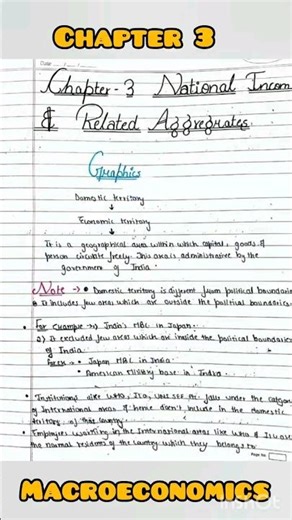 CHAPTER 3
Chapter-3 National Incom
& Related Aggregates.
Graphics
Domestic territory
Economic territory
It is a geographical area within which capital, goods &
person circulate freely. This area is administrative by the
government of India.
Note → • Domestic territory is different from political boundaries
It includes few area which are outside the political boundaries
• For example → India's MBC in Japan.
2) It excluded few area which are inside the political boundaries
of India.
• Japan MBC in India
• American Military base in India.
• Institutions like WHO, ILO, etc. falls under the categor
of International areas & hence don't include in the domestic
territory of the country.
• Employees working in the International areas like WHO & ILO are
the normal residents of the country which they belongs to
Page No.
MACROECONOMICS